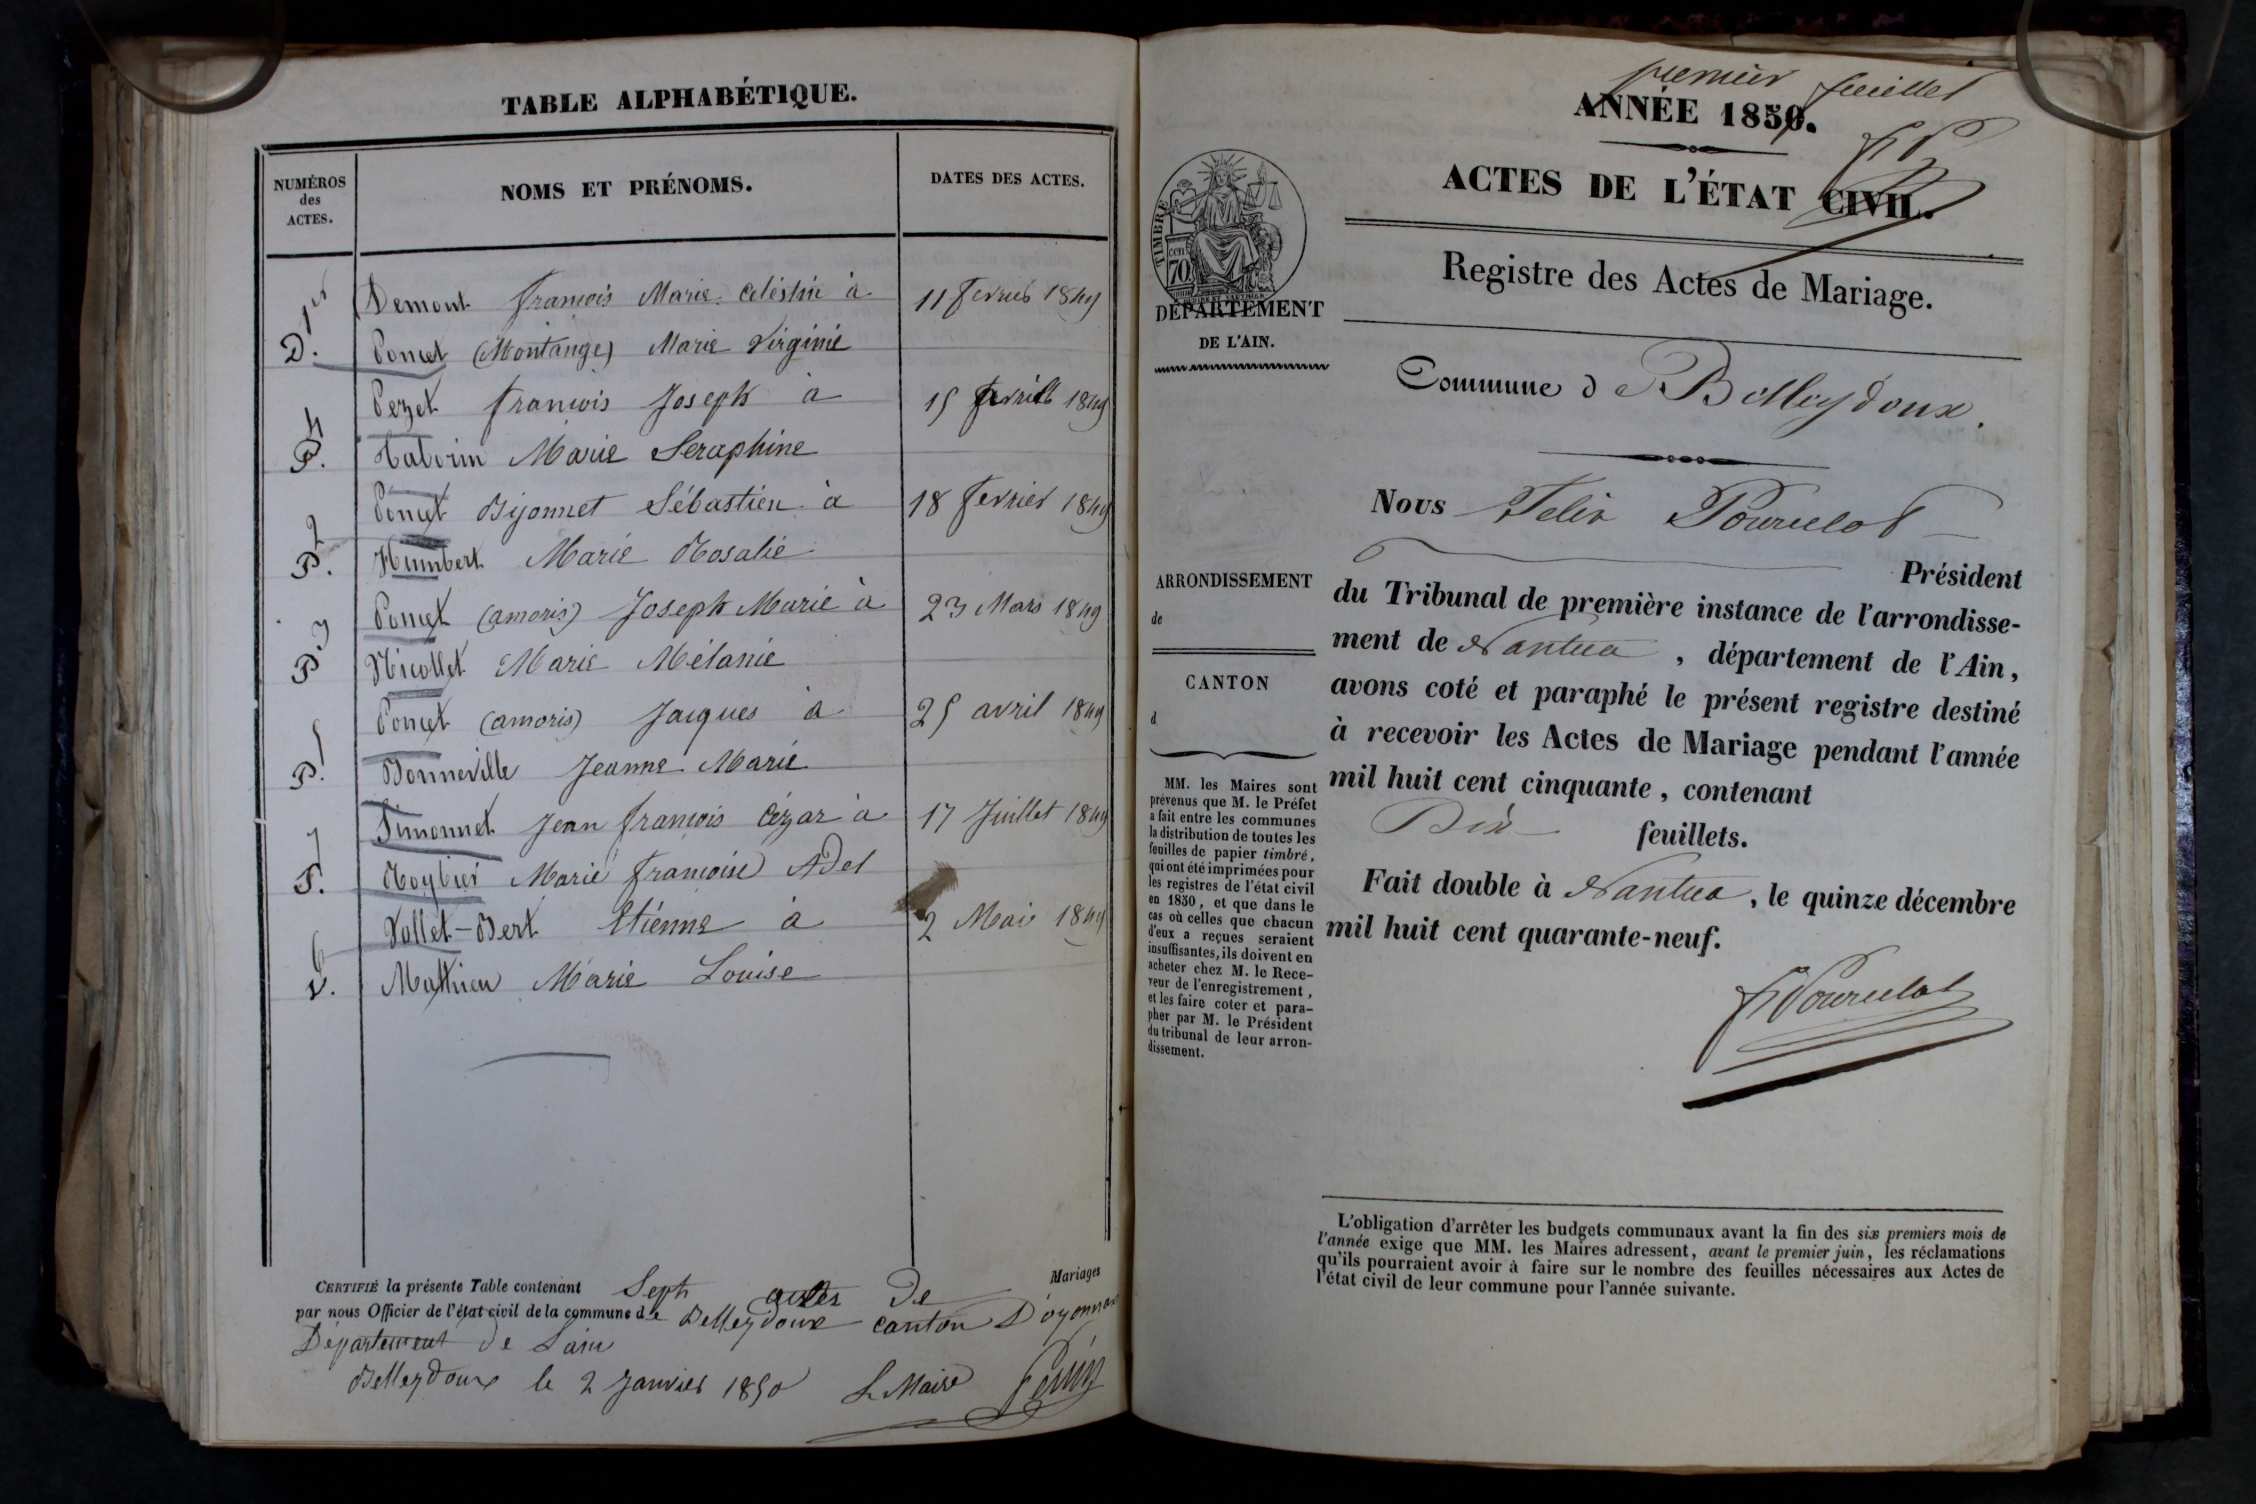 TABLE ALPHABÉTIQUE.
NUMÉROS
des
ACTES.
NOMS ET PRÉNOMS.
DATES DES ACTES.
D. 1er Demont françois Marie Célestin à 11 fevrier 1849
Poncet (Montange) Marie Virginie
P. 4 Perzet françois Joseph à 15 avril 1849
Marie Seraphine
P. 2 Poncet Bijonnet Sébastien à 18 fevrier 1849
Humbert Marie Rosalie
P. 3 Poncet (amoris) Joseph Marie à 23 Mars 1849
Nicollet Marie Mélanie
P. 5 Poncet (amoris) Jacques à 25 avril 1849
Bonneville Jeanne Marie
S. 7 Simonnet Jean françois Cézar à 17 Juillet 1849
Roybier Marie françoise Adel
V. 6 Vallet-Bert Etienne à 2 Mai 1849
Mathieu Marie Louise
CERTIFIÉ la présente Table contenant Sept actes De Mariages
par nous Officier de l'état civil de la commune de Belleydoux canton D'oyonnax
Département de L'ain
Belleydoux le 2 Janvier 1850 Le Maire
premier feuillet
ANNÉE 1850.
ACTES DE L'ÉTAT CIVIL.
Registre des Actes de Mariage.
TIMBRE
70
DÉPARTEMENT
DE L'AIN.
Commune de Belleydoux.
Nous Felix Pourcelot
Président
du Tribunal de première instance de l'arrondisse-
ment de Nantua, département de l'Ain,
avons coté et paraphé le présent registre destiné
à recevoir les Actes de Mariage pendant l'année
mil huit cent cinquante, contenant
Dix feuillets.
Fait double à Nantua, le quinze décembre
mil huit cent quarante-neuf.
F Pourcelot
ARRONDISSEMENT
de
CANTON
d
MM. les Maires sont
prévenus que M. le Préfet
a fait entre les communes
la distribution de toutes les
feuilles de papier timbré,
qui ont été imprimées pour
les registres de l'état civil
en 1850, et que dans le
cas où celles que chacun
d'eux a reçues seraient
insuffisantes, ils doivent en
acheter chez M. le Rece-
veur de l'enregistrement,
et les faire coter et para-
pher par M. le Président
du tribunal de leur arron-
dissement.
L'obligation d'arrêter les budgets communaux avant la fin des six premiers mois de
l'année exige que MM. les Maires adressent, avant le premier juin, les réclamations
qu'ils pourraient avoir à faire sur le nombre des feuilles nécessaires aux Actes de
l'état civil de leur commune pour l'année suivante.